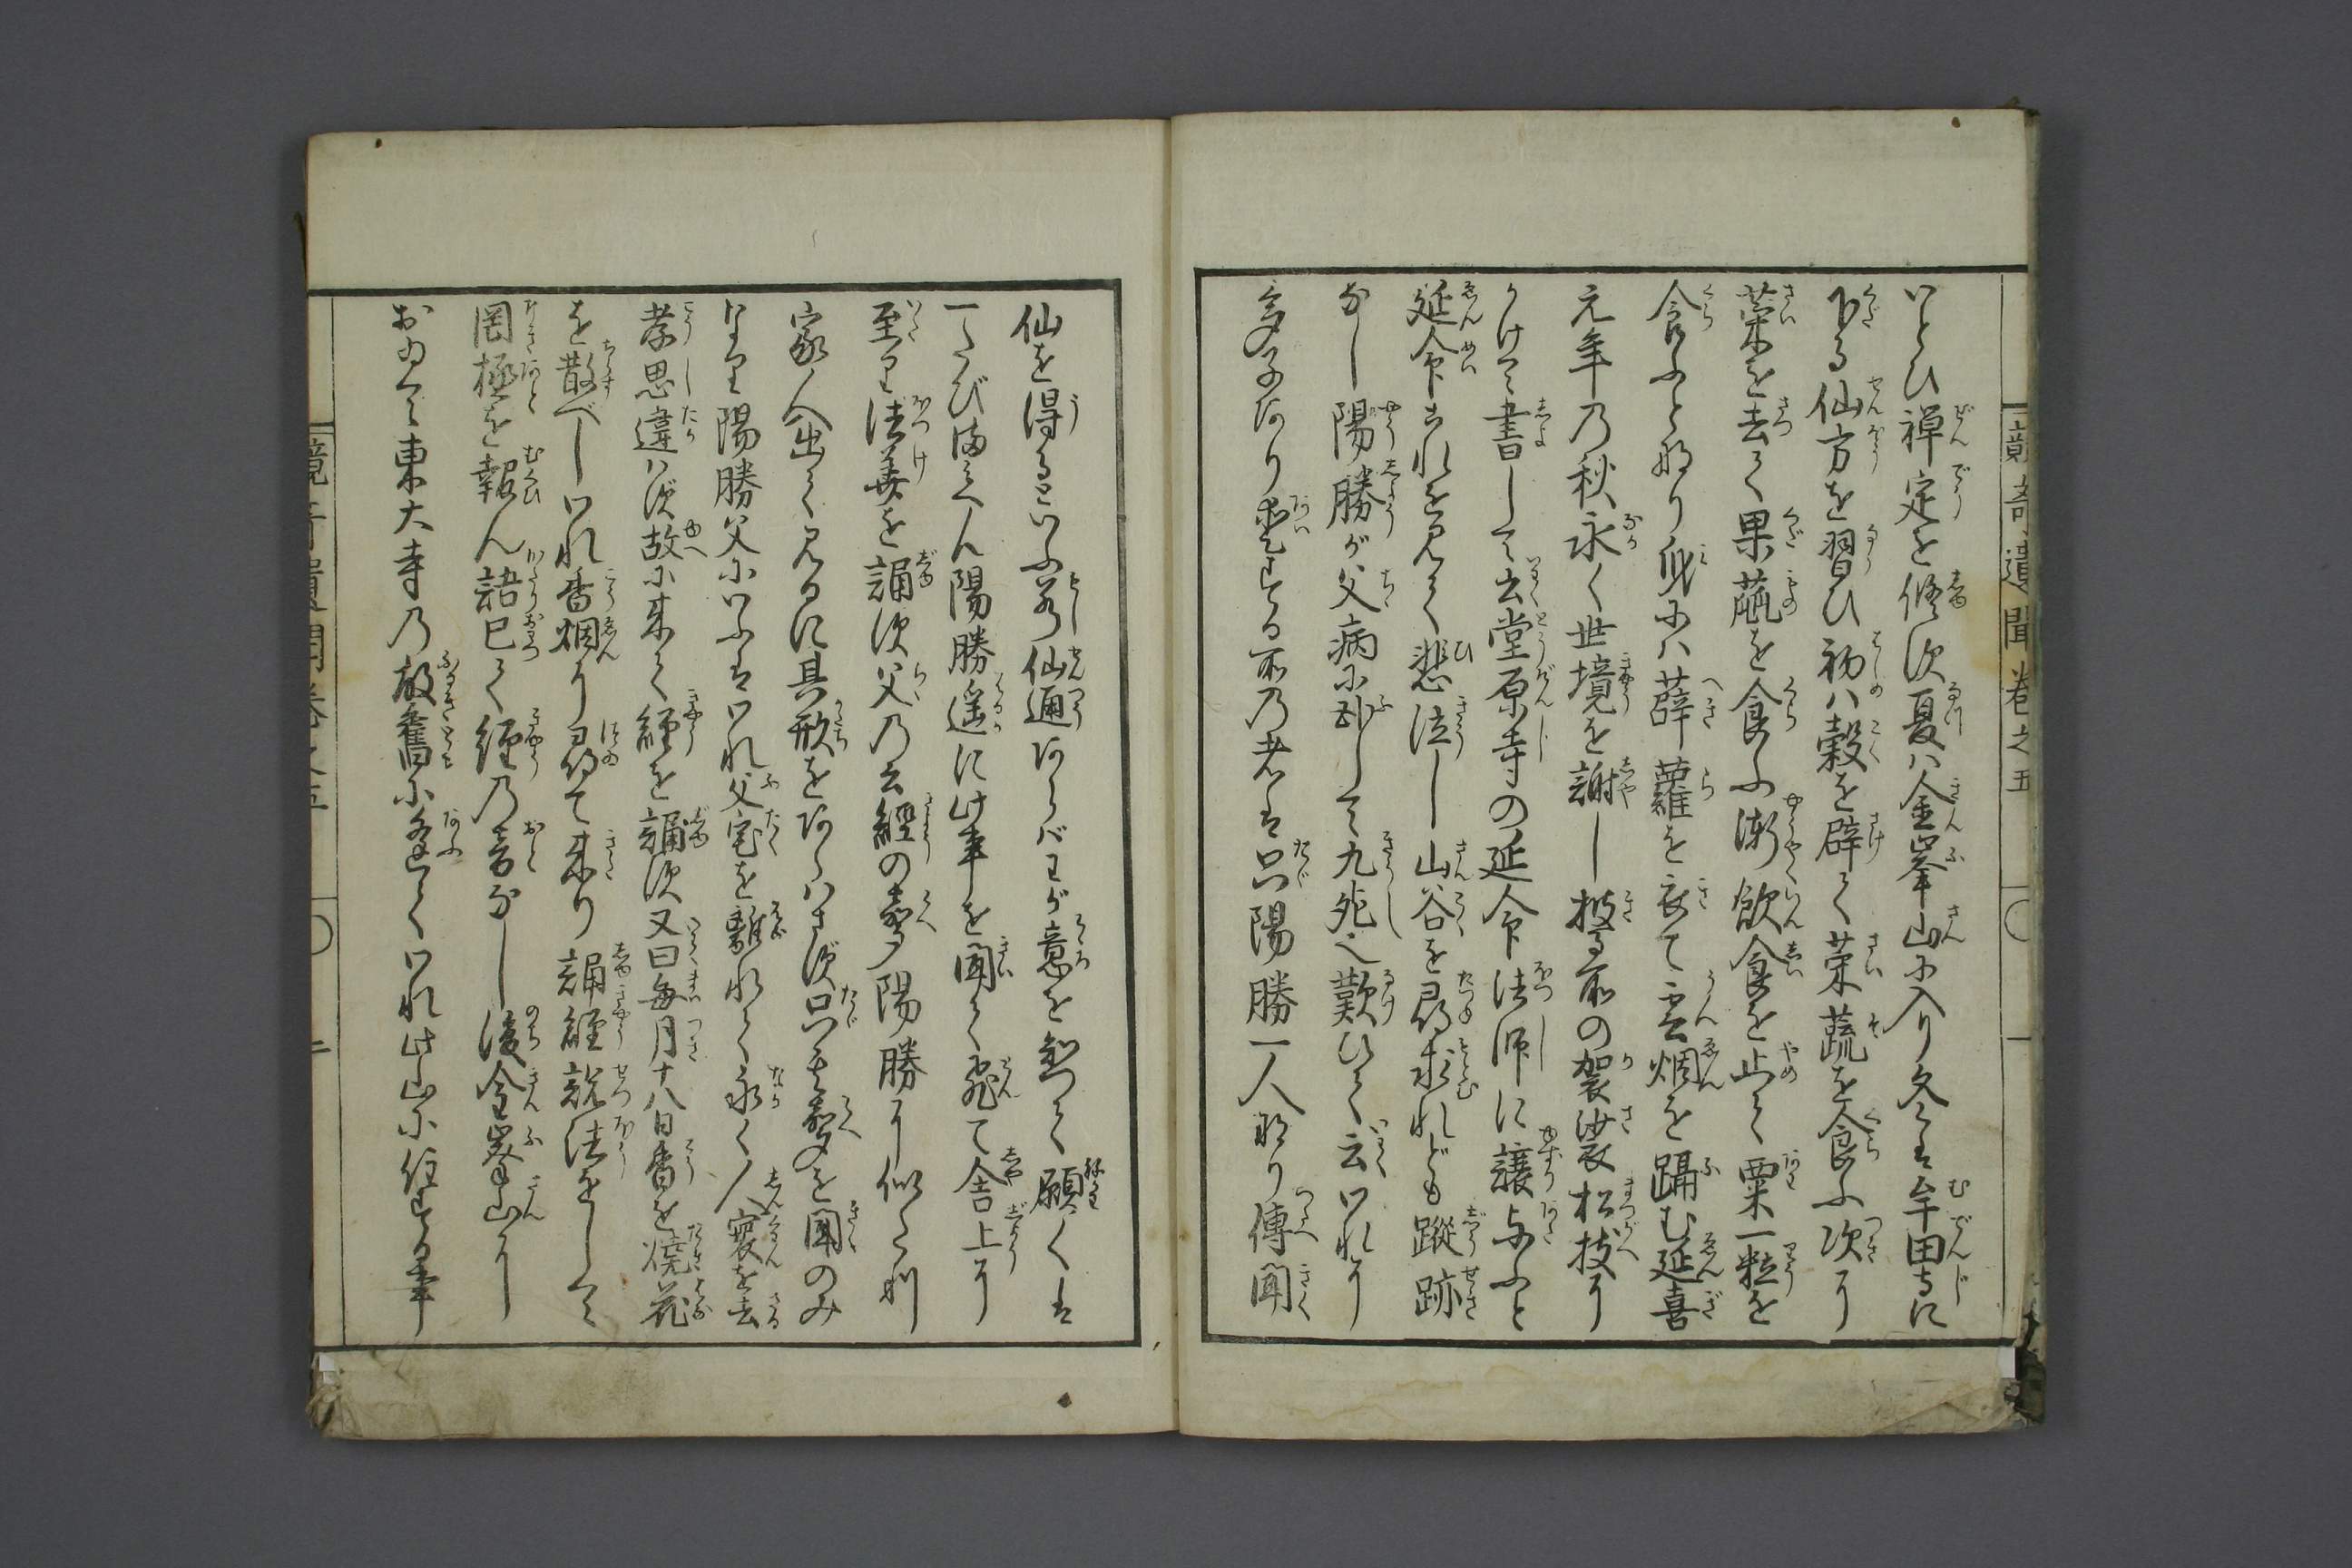 競奇遺聞巻之五
一
いとひ禅定を修次夏は金峯山に入り冬は牟田寺に
下る仙方を習ひ初は穀を辟て菜蔬を食ふ次に
菜を去て果蓏を食ふ漸飲食を止て粟一粒を
食ふとなり身には薜蘿を衣て雲烟を躡む延喜
元年乃秋永く世境を謝し披る所の袈裟松枝に
かけて書して云堂原寺の延命法師に譲与ふと
延命これを見て悲泣し山谷を尋求れども蹤跡
なし陽勝が父病に臥して九死之歎ひて云われに
多子あり愛する所の者は只陽勝一人なり傳聞
仙を得るといふ若仙通あらバわが意を知つて願くは
一たび満へん陽勝遥に此事を聞て飛て舎上に
至り法華を誦次父乃云經の声陽勝に似たり
家人出て見るに其形をあらはさず只其声を聞のみ
なり陽勝父にいふはわれ父宅を離れて永く人寰を去
孝思違はず故に来て經を誦次又曰毎月十八日香を焼花
を散べしわれ香烟に尋て来り誦經説法をして
罔極を報ん語已て經乃音なし後金峯山に
おゐて東大寺乃故舊に逢てわれ此山に住する事
競奇遺聞巻之五
二